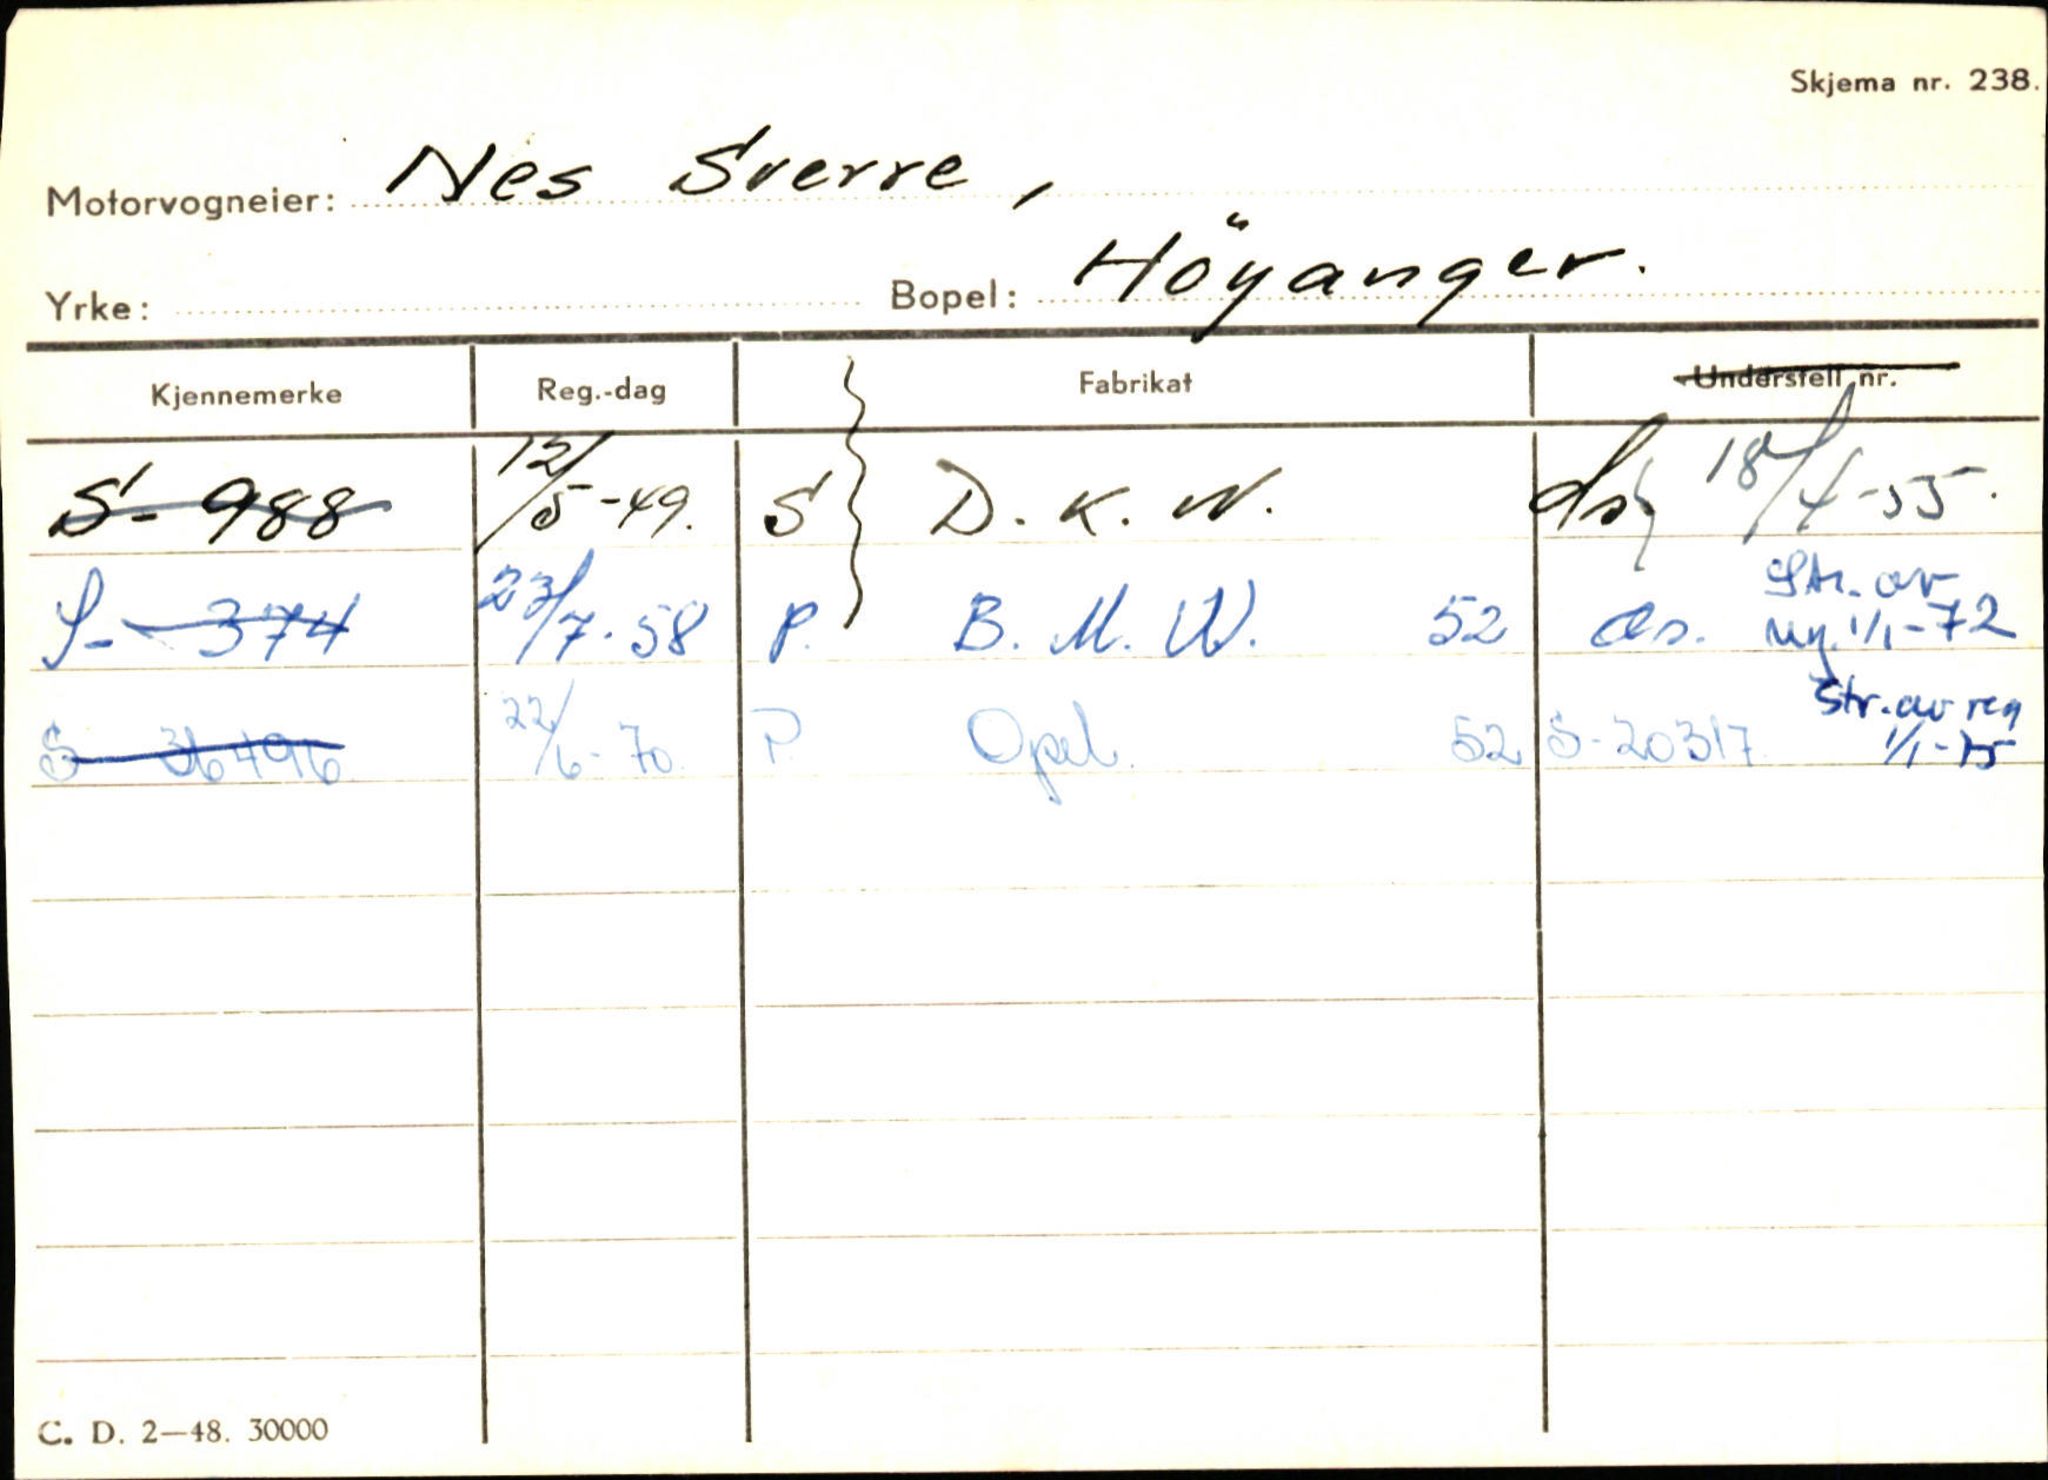 Skjema nr. 238.
Motorvogneier: Nes Sverre,
Yrke: Bopel: Höyanger.
Kjennemerke Reg.-dag Fabrikat Understell nr.
S-988 12/5-49. S D.K.W. 18/4-55.
S-374 23/7-58 P. B.M.W. 52 as. Str. av reg. 1/1-72
S-36496 22/6-70. P. Opel. 52 S-20317 Str. av reg 1/1-75
C. D. 2—48. 30000